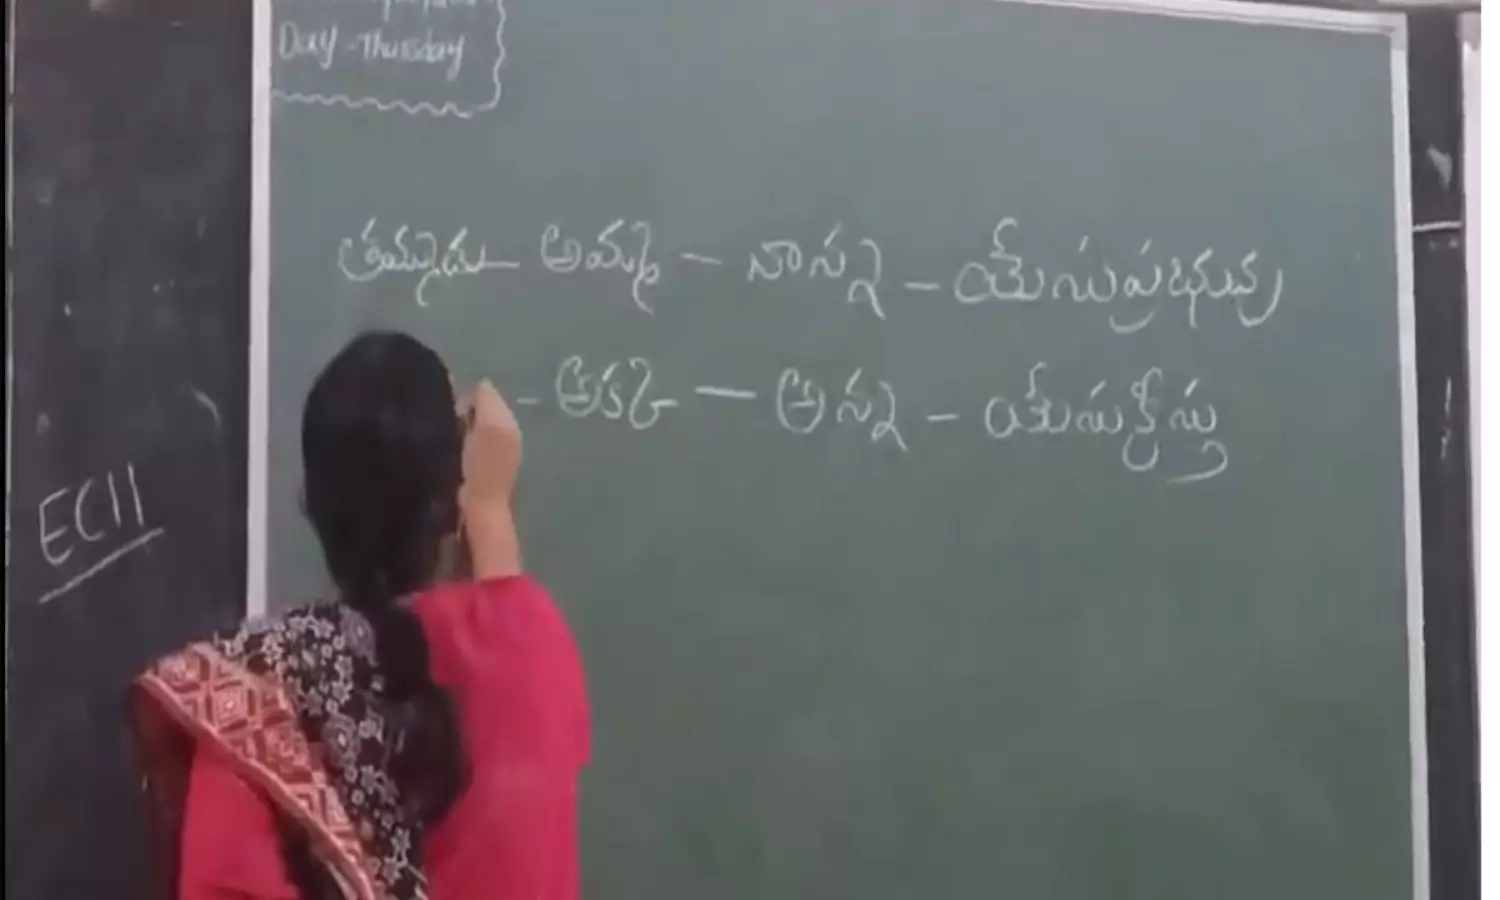 Day - Thursday
తమ్ముడు - అమ్మ - నాన్న - యేసుప్రభువు
- అక్క - అన్న - యేసుక్రీస్తు
ECII